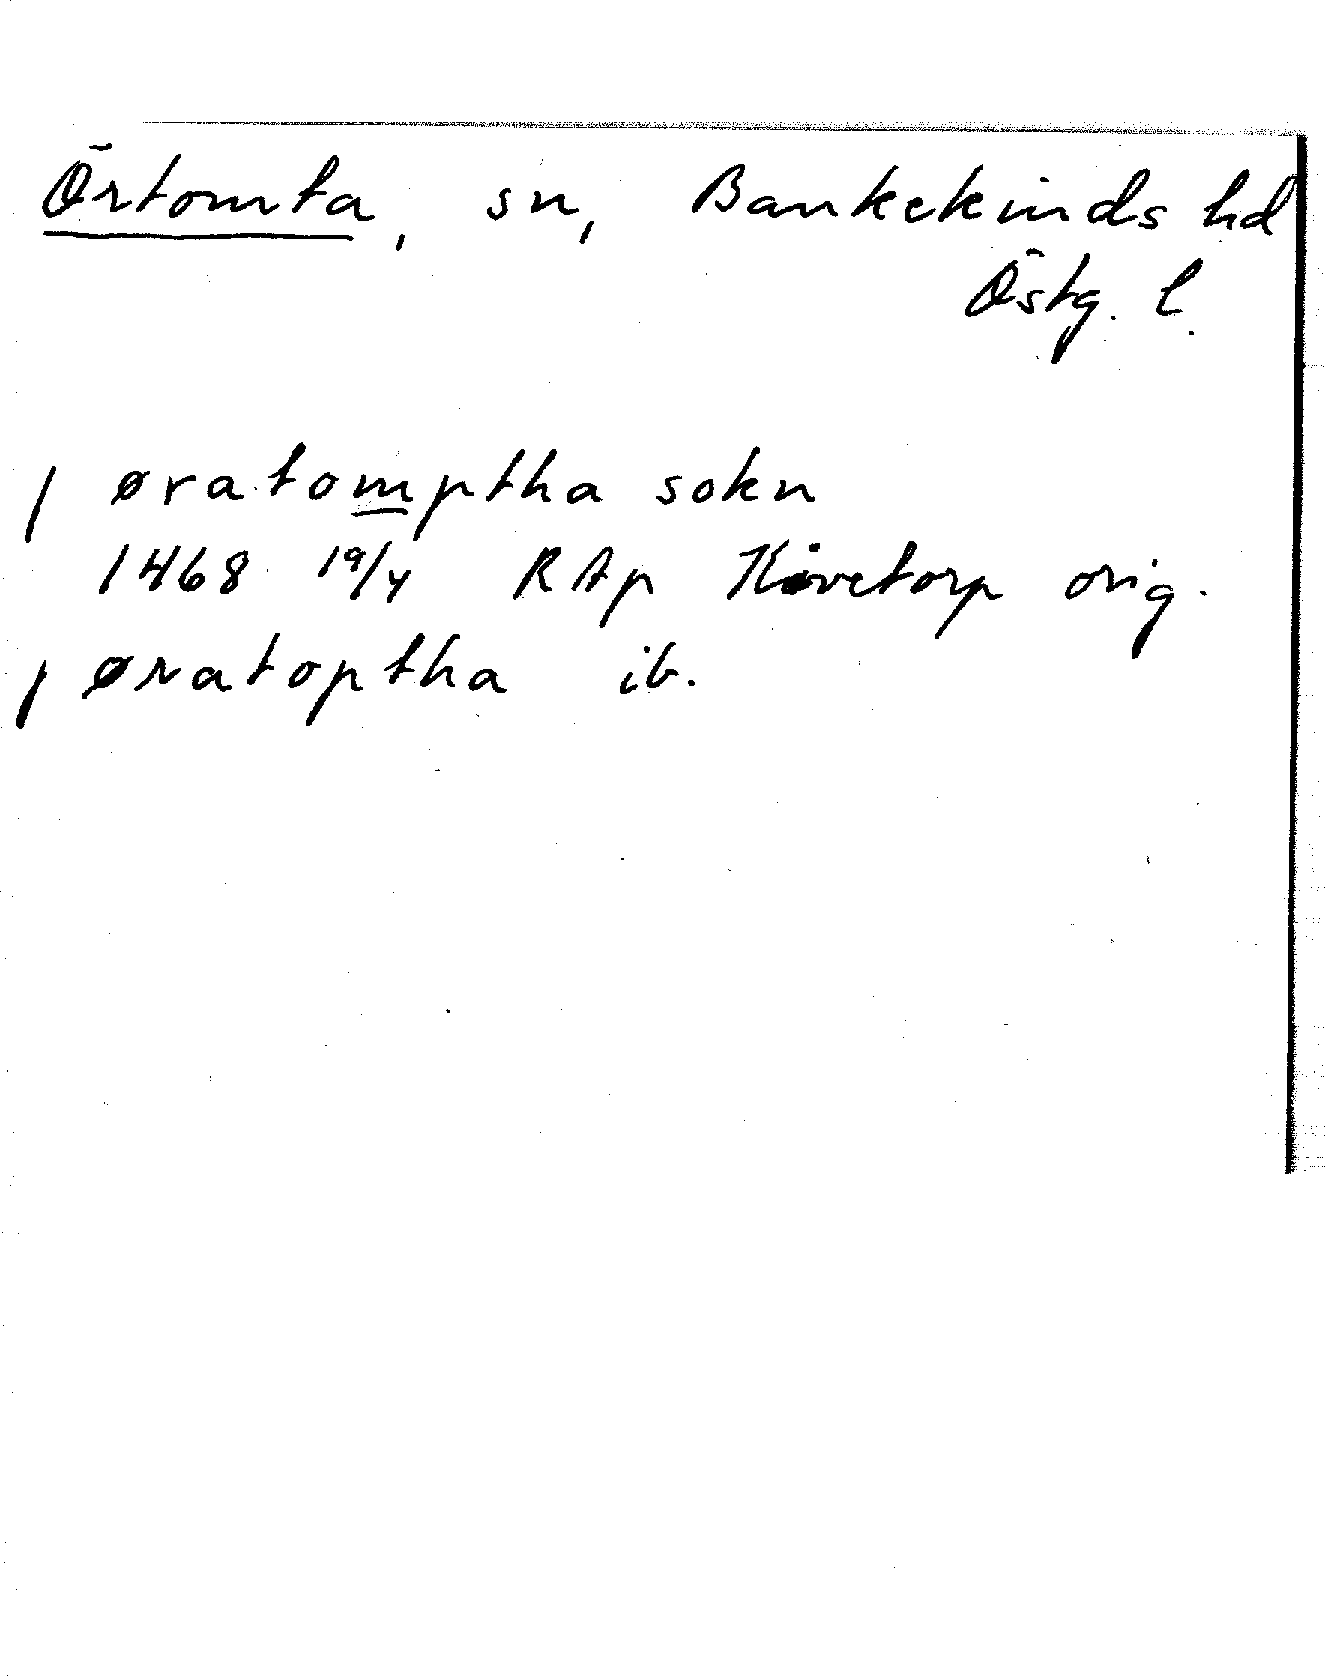 Örtomta, sn, Bankekinds hd
Östg. l.
/ øratomptha sokn
1468 19/4 RAp Hivetorp orig.
/ øratoptha ib.